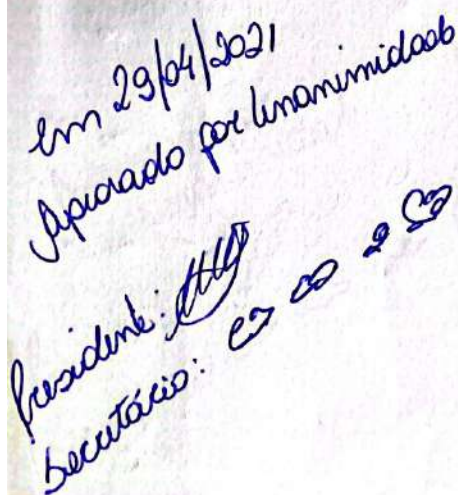 em 29/04/2021
Aprovado por Unanimidade
Presidente:
Secretário: